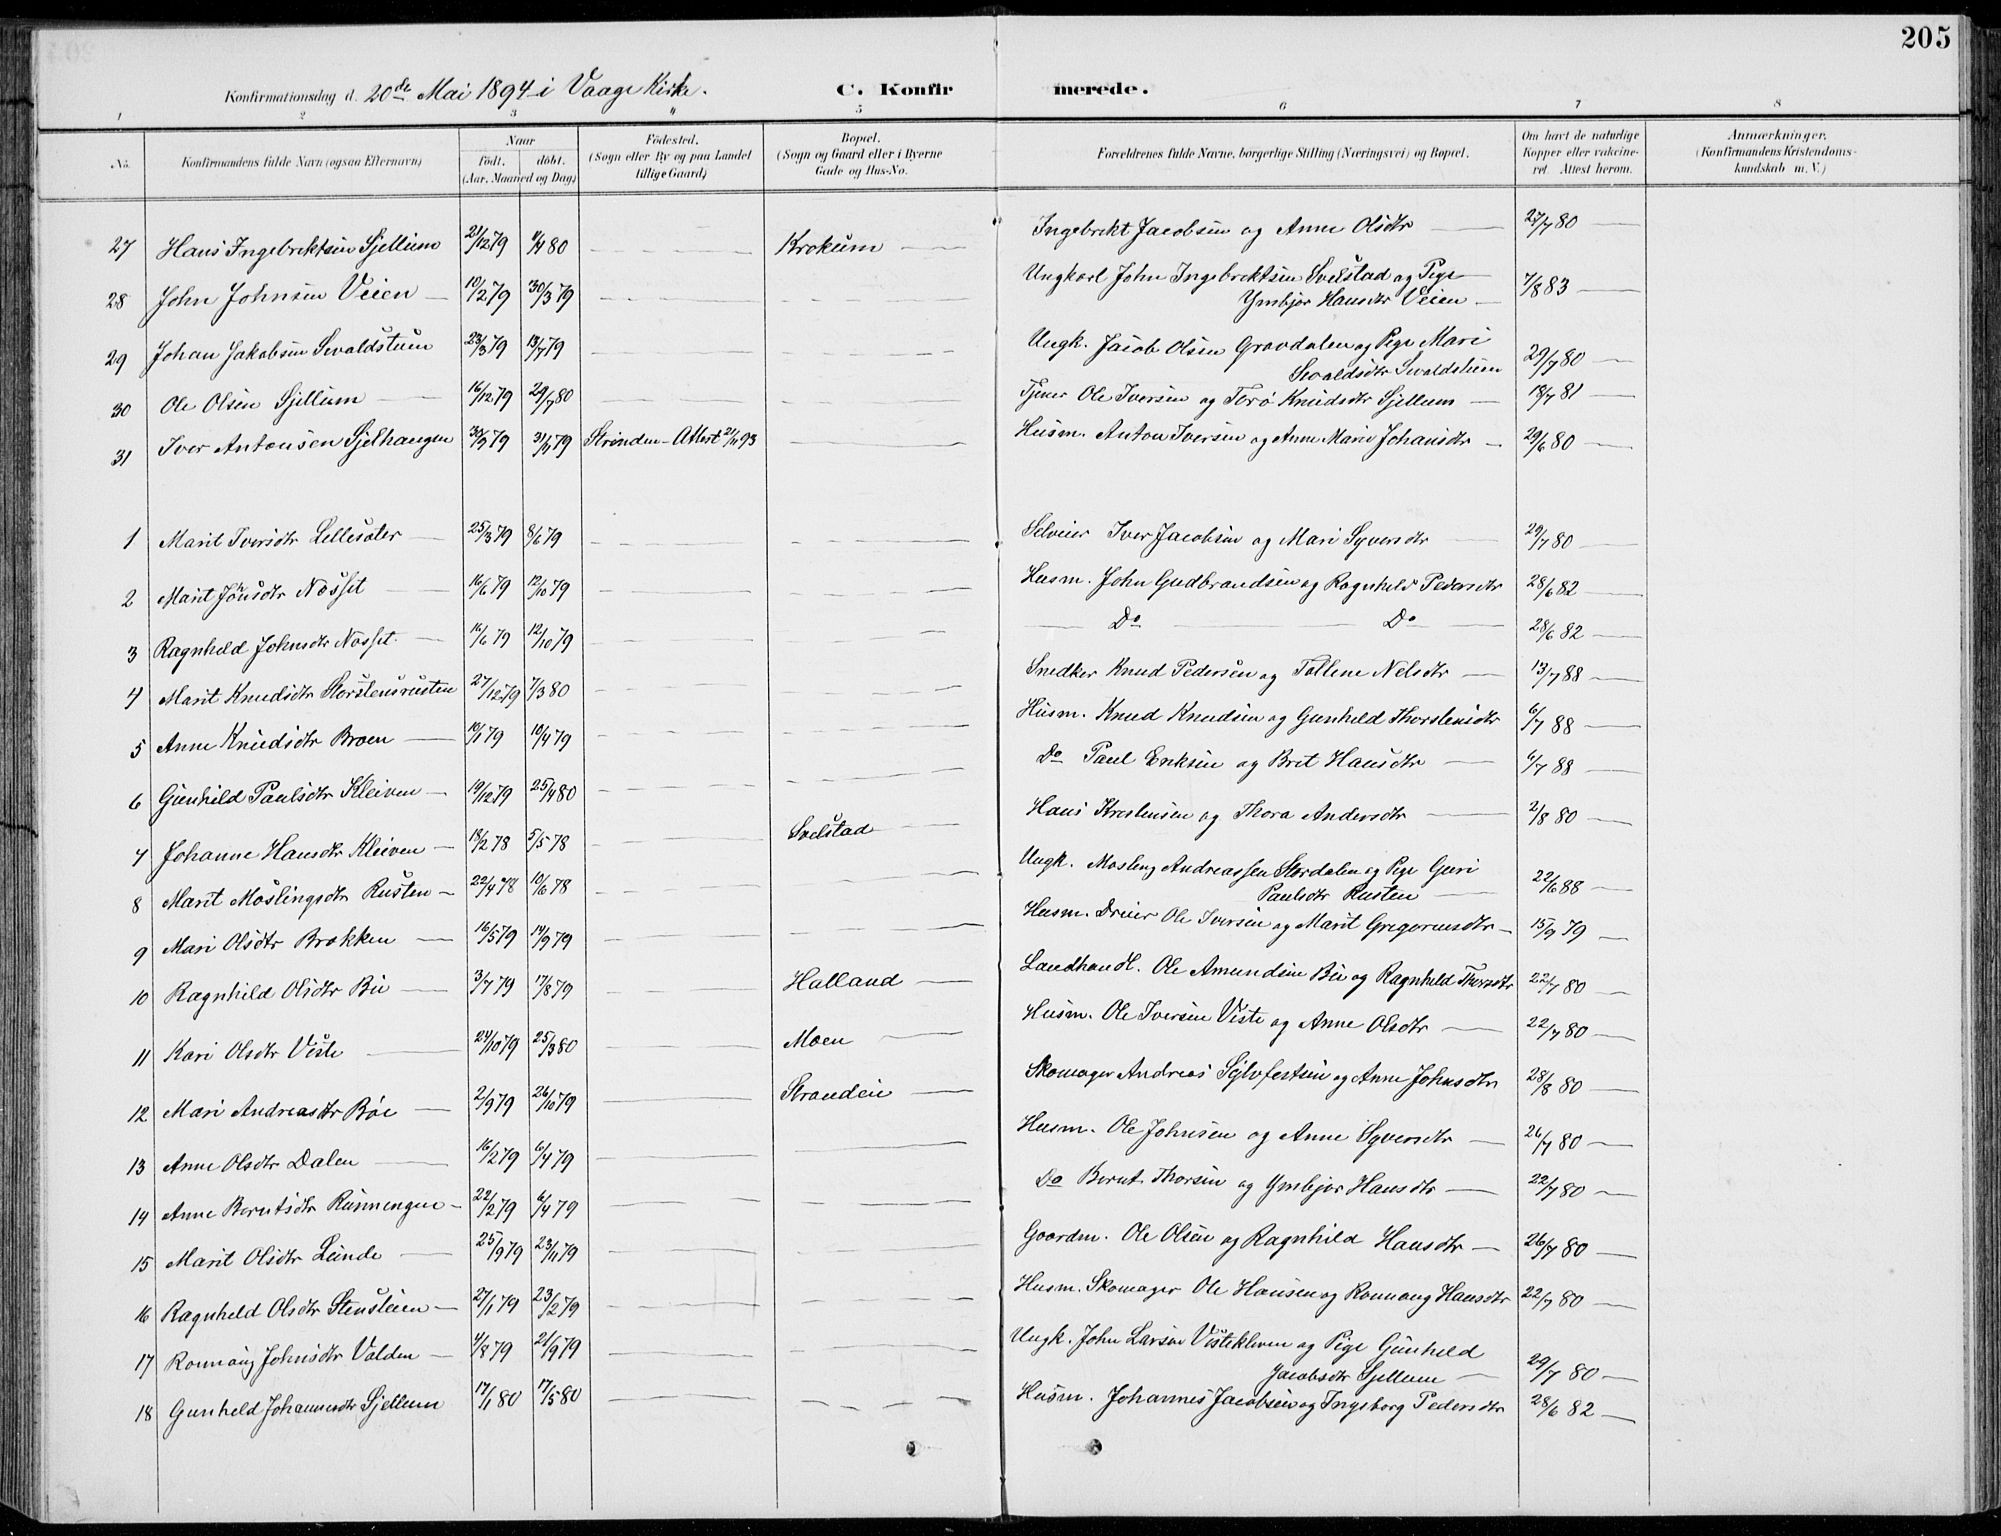 205
Konfirmationsdag d. 20de Mai 1894 i Vaage Kirke. C. Konfirmerede.
1 2 3 4 5 6 7 8
No. Konfirmandens fulde Navn (ogsaa Efternavn) Naar født. døbt. (Aar, Maaned og Dag) Födested. (Sogn eller By og paa Landet tillige Gaard) Bopæl. (Sogn og Gaard eller i Byerne Gade og Hus-No. Forældrenes fulde Navne, borgerlige Stilling (Næringsvei) og Bopæl. Om havt de naturlige Kopper eller vakcineret. Attest herom. Anmærkninger. (Konfirmandens Kristendomskundskab m. V.)
27 Hans Ingebriktsen Sjellum 21/12 79 1/4 80 Krokum Ingebrikt Jacobsen og Anne Olsdtr 27/7 80
28 John Johnsen Veien 10/2 79 30/3 79 Ungkarl John Ingebriktsen Svelstad og Pige
Ymbjør Hansdtr Veien 7/8 83
29 Johan Jakobsen Svaldstuen 23/3 79 13/7 79 Ungk. Jacob Olsen Gravdalen og Pige Mari
Svaldsdtr Svaldstuen 29/7 80
30 Ole Olsen Sjellum 16/12 79 29/7 80 Tjener Ole Iversen og Torø Knudsdtr Sjellum 18/7 81
31 Iver Antonsen Sjelhaugen 30/3 79 31/7 79 Strinden - Attest 21/11 93 Husm. Anton Iversen og Anne Marie Johansdtr 29/6 80
1 Marit Iversdtr Lillesæter 25/3 79 8/6 79 Selveier Iver Jacobsen og Mari Syversdtr 29/7 80
2 Marit Johnsdtr Nosset 16/6 79 12/10 79 Husm. John Gudbrandsen og Ragnhild Pedersdtr 28/6 82
3 Ragnhild Johnsdtr Nosset 16/6 79 12/10 79 Do Do 28/6 82
4 Marit Knudsdtr Storstensrusten 27/12 79 7/3 80 Snedker Knud Pedersen og Tollene Nelsdtr 13/7 88
5 Anne Knudsdtr Broen 10/1 79 10/4 79 Husm. Knud Knudsen og Gunhild Thorstensdtr 6/7 88
6 Gunhild Paulsdtr Kleiven 19/12 79 25/4 80 Do Paul Eriksen og Brit Hansdtr 6/7 88
7 Johanne Hansdtr Kleiven 18/2 78 5/5 78 Svelstad Hans Kristensen og Thora Andersdtr 2/8 80
8 Marit Moslingsdtr Rusten 22/4 78 10/6 78 Ungk. Mosling Andreassen Stordalen og Pige Guri
Paulsdtr Rusten 22/6 88
9 Mari Olsdtr Brokken 16/5 79 14/9 79 Husm. Dreier Ole Iversen og Marit Gregoriusdtr 15/9 79
10 Ragnhild Olsdtr Bu 3/7 79 17/8 79 Halland Landhandl. Ole Amundsen Bu og Ragnhild Thorsdtr 22/7 80
11 Kari Olsdtr Viste 24/10 79 25/3 80 Moen Husm. Ole Iversen Viste og Anne Olsdtr 22/7 80
12 Mari Andreasdtr Bøe 2/9 79 26/10 79 Stranden Skomager Andreas Sylfestsen og Anne Johnsdtr 28/8 80
13 Anne Olsdtr Dalen 16/2 79 6/4 79 Husm. Ole Johnsen og Anne Syversdtr 26/7 80
14 Anne Berntsdtr Runningen 22/2 79 6/4 79 Do Bernt Thorsen og Ymbjør Hansdtr 22/7 80
15 Marit Olsdtr Lunde 25/9 79 23/11 79 Gaardm. Ole Olsen og Ragnhild Hansdtr 26/7 80
16 Ragnhild Olsdtr Stensleien 27/1 79 23/2 79 Husm. Skomager Ole Hansen og Ronnaug Hansdtr 22/7 80
17 Ronnaug Johnsdtr Valden 4/8 79 21/9 79 Ungk. John Larsen Vistekleven og Pige Gunhild
Jacobsdtr Sjellum 29/7 80
18 Gunhild Johannesdtr Sjellum 17/1 80 17/5 80 Husm. Johannes Jacobsen og Ingeborg Pedersdtr 28/6 82